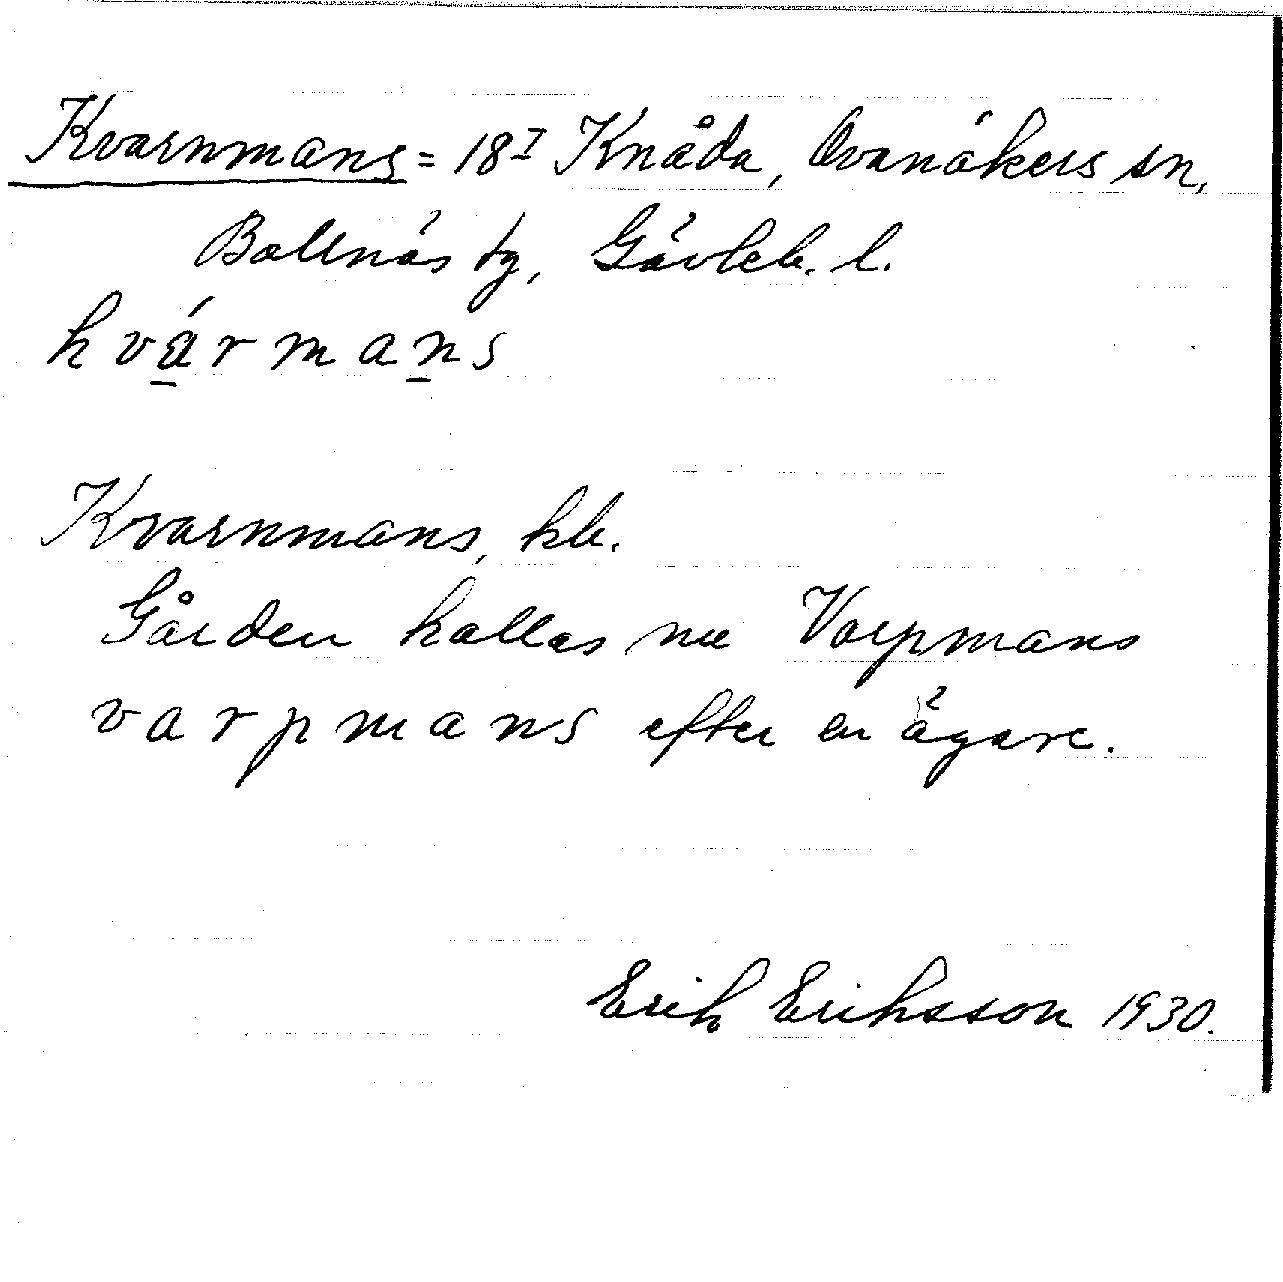 Kvarnmans = 18¹ Knåda, Ovanåkers sn,
Bollnäs tg, Gävleb. l.
kvármans
Kvarnmans, kb.
Gården kallas nu Varpmans
varpmans efter en ägare.
Erik Eriksson 1930.